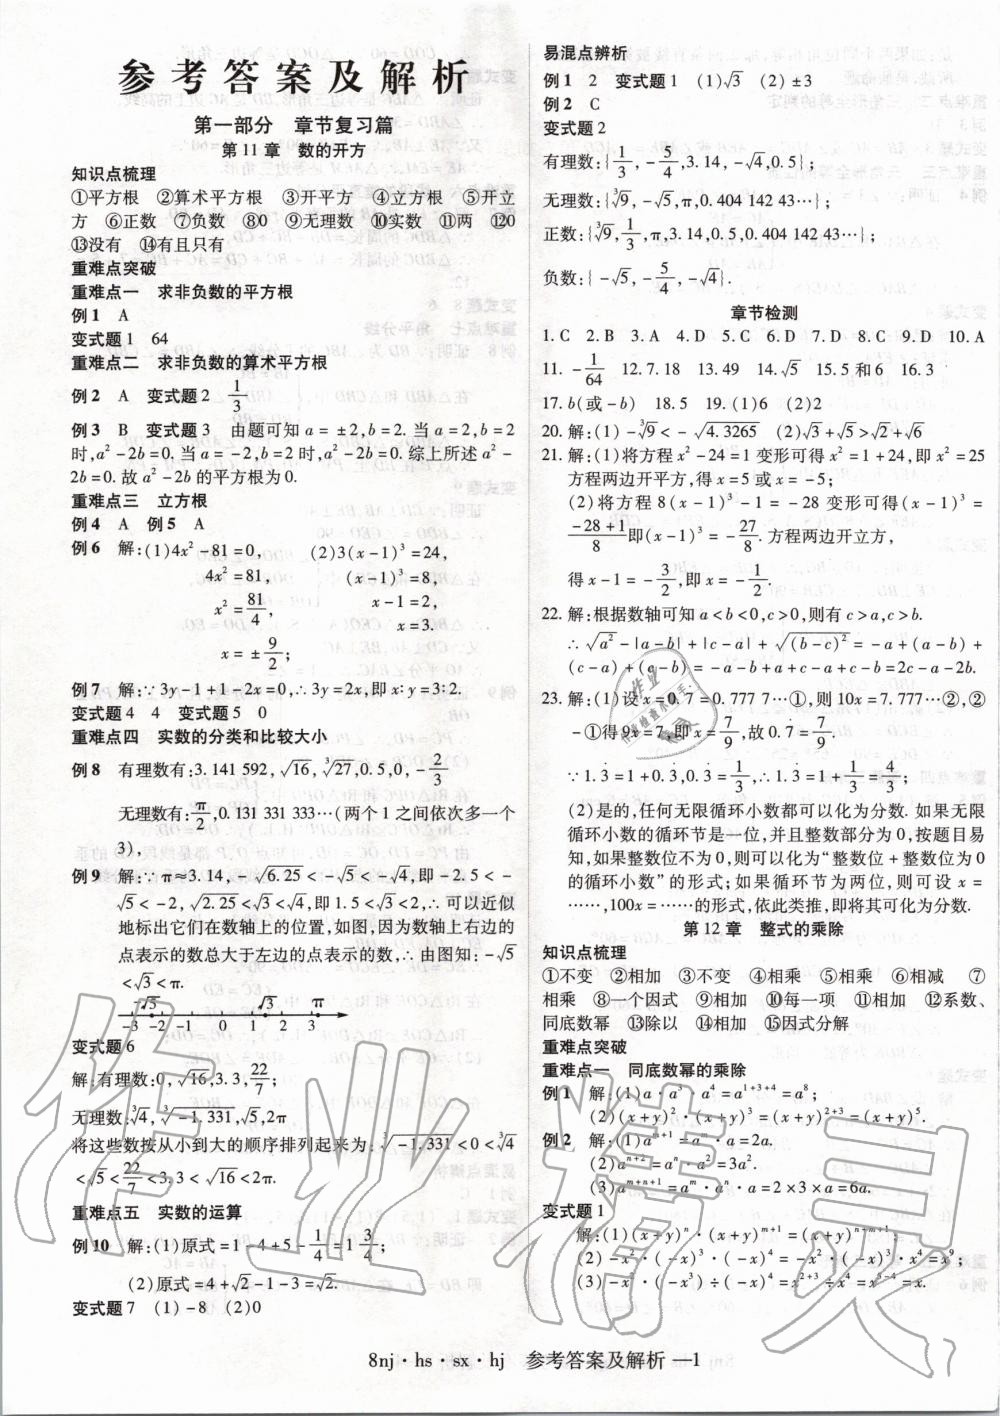 参考答案及解析
第一部分　章节复习篇
第11章　数的开方
知识点梳理
①平方根　②算术平方根　③开平方　④立方根　⑤开立
方　⑥正数　⑦负数　⑧0　⑨无理数　⑩实数　⑪两　⑫0
⑬没有　⑭有且只有
重难点突破
重难点一　求非负数的平方根
例1　A
变式题1　64
重难点二　求非负数的算术平方根
例2　A　变式题2　1/3
例3　B　变式题3　由题可知a=±2,b=2.当a=2,b=2
时,a²-2b=0.当a=-2,b=2时,a²-2b=0.综上所述a²-
2b=0.故a²-2b的平方根为0.
重难点三　立方根
例4　A　例5　A
例6　解:(1)4x²-81=0,　(2)3(x-1)³=24,
4x²=81,　(x-1)³=8,
x²=81/4,　x-1=2,
x=±9/2;　x=3.
例7　解:∵3y-1+1-2x=0,∴3y=2x,即x:y=3:2.
变式题4　4　变式题5　0
重难点四　实数的分类和比较大小
例8　有理数有:3.141 592,√16,³√27,0.5,0,-2/3
无理数有:π/2,0.131 331 333…(两个1之间依次多一个
3),
例9　解:∵π≈3.14,-√6.25<-√5<-√4,即-2.5<-
√5<-2,√2.25<√3<√4,即1.5<√3<2,∴可以近似
地标出它们在数轴上的位置,如图,因为数轴上右边的
点表示的数总大于左边的点表示的数,∴由图知:-√5
<√3<π.
-√5　√3　π
-3 -2 -1 0 1 2 3
变式题6
解:有理数:0,√16,3.3,22/7;
无理数:³√4,³√-1.331,√5,2π
将这些数按从小到大的顺序排列起来为:³√-1.331<0<³√4
<√5<22/7<3.3<√16<2π.
重难点五　实数的运算
例10　解:(1)原式=1-4+5-1/4=1 3/4;
(2)原式=4+√2-1-3=√2.
变式题7　(1)-8　(2)0
易混点辨析
例1　2　变式题1　(1)√3　(2)±3
例2　C
变式题2
有理数:{1/3,-5/4,3.14,-√4,0.5};
无理数:{³√9,-√5,π,0.404 142 43…};
正数:{³√9,1/3,π,3.14,0.5,0.404 142 43…};
负数:{-√5,-5/4,-√4}.
章节检测
1.C　2.B　3.A　4.D　5.C　6.D　7.D　8.C　9.D　10.A
11.-1/64　12.7.18　13.49　14.√5　15.5和6　16.3
17.b(或-b)　18.5　19.(1)6　(2)2
20.解:(1)-³√9<-√4.3265　(2)√3+√5>√2+√6
21.解:(1)将方程x²-24=1变形可得x²=1+24,即x²=25
方程两边开平方,得x=5或x=-5;
(2)将方程8(x-1)³-1=-28变形可得(x-1)³=
(-28+1)/8即(x-1)³=-27/8.方程两边开立方,
得x-1=-3/2,即x=-1/2.
22.解:根据数轴可知a<b<0,c>0,则有c>a,c>b.
∴√a²-|a-b|+|c-a|+√(b-c)²=-a+(a-b)+
(c-a)+(c-b)=-a-b+a+c-a+c-b=2c-a-2b.
23.解:(1)设x=0.7̇=0.777 7…①,则10x=7.777…②,②
-①得9x=7,即x=7/9,故0.7̇=7/9.
∵1.3̇=1+0.3̇,0.3̇=1/3,∴1.3̇=1+1/3=4/3;
(2)是的,任何无限循环小数都可以化为分数.如果无限
循环小数的循环节是一位,并且整数部分为0,按题目易
知,如果整数位不为0,则可以化为“整数位+整数位为0
的循环小数”的形式;如果循环节为两位,则可设x=
……,100x=……的形式,依此类推,即将其可化为分数.
第12章　整式的乘除
知识点梳理
①不变　②相加　③不变　④相乘　⑤相乘　⑥相减　⑦
相乘　⑧一个因式　⑨相加　⑩每一项　⑪相加　⑫系数、
同底数幂　⑬除以　⑭相加　⑮因式分解
重难点突破
重难点一　同底数幂的乘除
例1　解:(1)a·a³·a⁴=a¹⁺³⁺⁴=a⁸;
(2)(x+y)²·(x+y)³=(x+y)²⁺³=(x+y)⁵.
例2　解:(1)aᵐ⁺¹=aᵐ·a=2a.
(2)aⁿ⁺²=aⁿ·a²=3a².
(3)aᵐ⁺ⁿ⁺¹=aᵐ·aⁿ·a=2×3×a=6a.
变式题1
解:(1)(x+y)ⁿ·(x+y)ᵐ⁺¹=(x+y)ⁿ⁺ᵐ⁺¹;
8nj·hs·sx·hj　参考答案及解析　—1
作业精灵